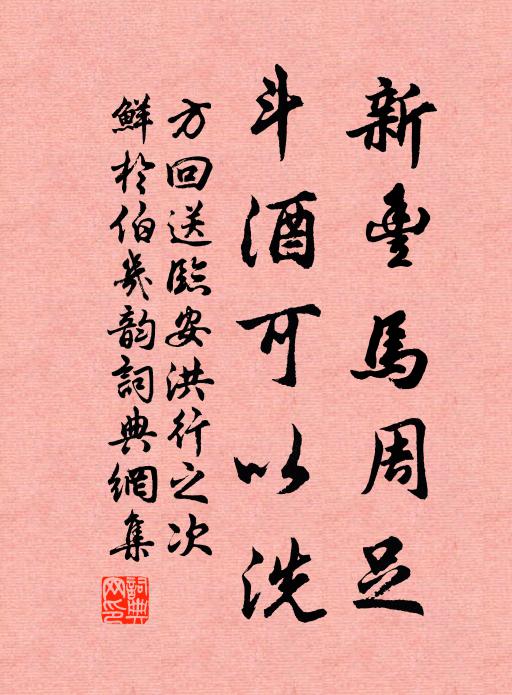 新豐馬周足
斗酒可以洗
方回送臨安洪行之次
鮮於伯幾韵詞典網集
詞典網印